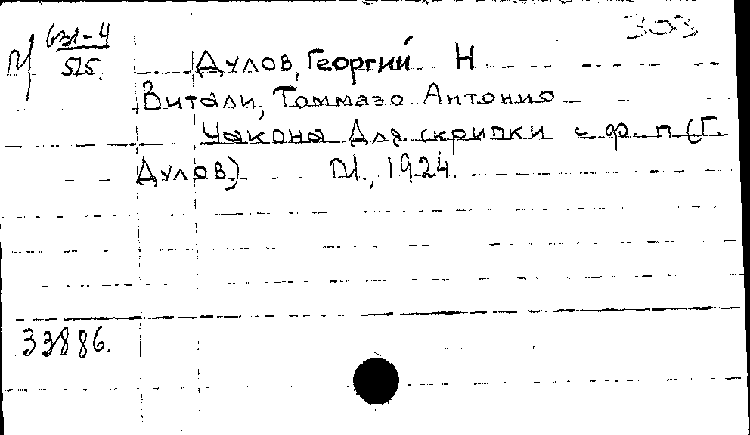 303
М 631-4
525.
Дулов, Георгий Н
Витали, Томмазо Антонио
Чакона для скрипки с ф. п (Г.
Дулов) М., 1924.
33886.